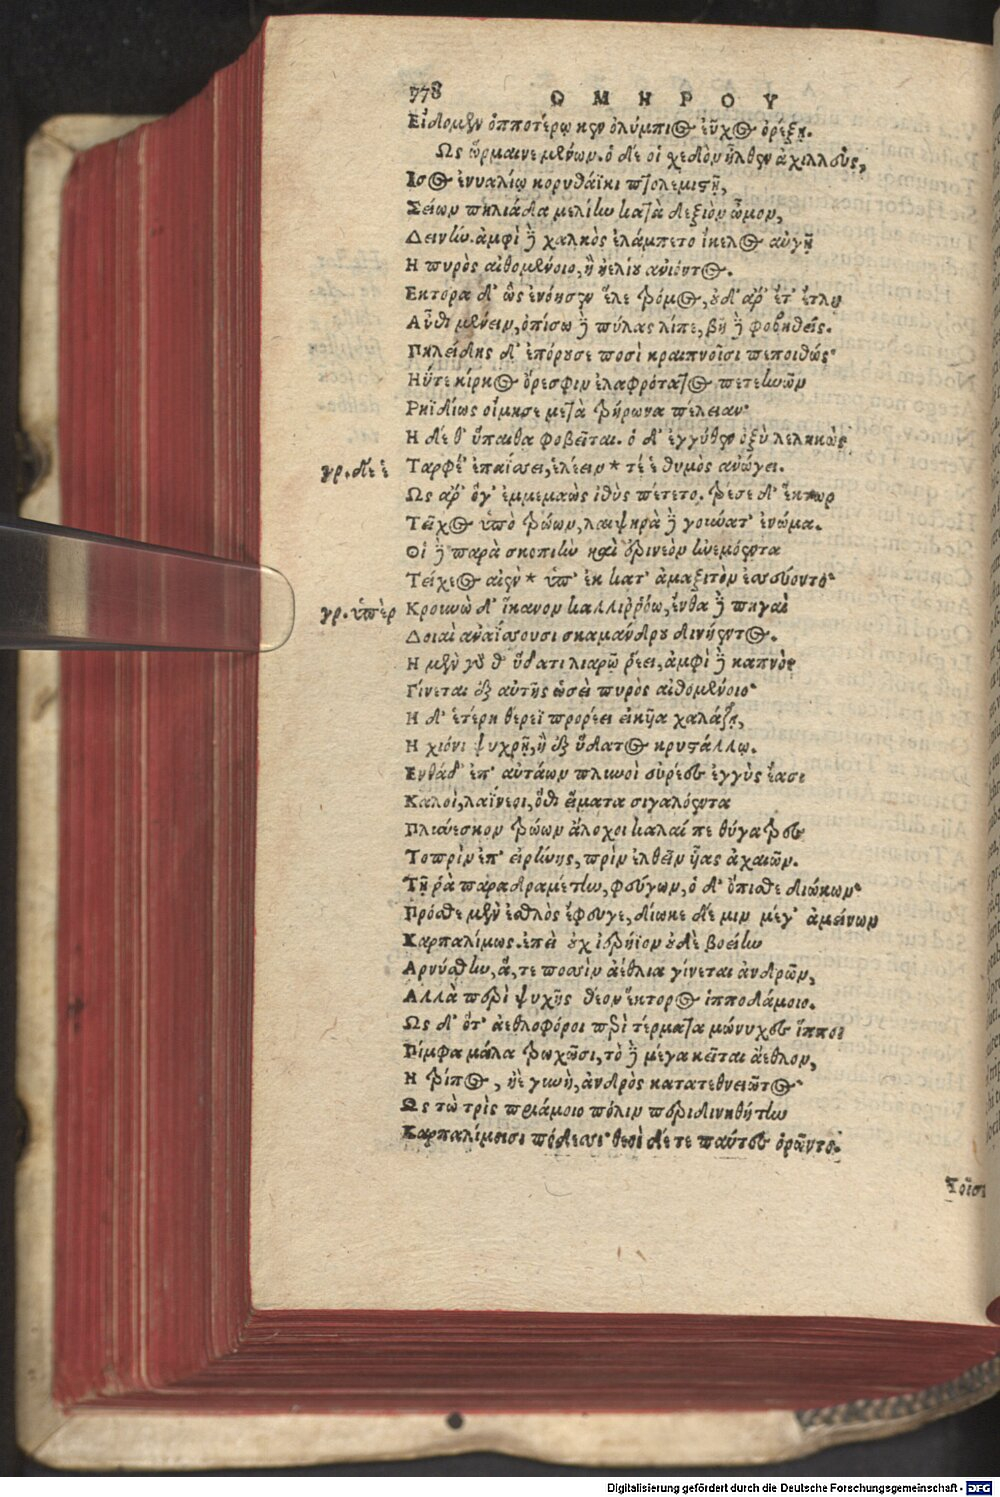 778
ΟΜΗΡΟΥ
Εἴδομεν ὁπποτέρῳ κεν ὀλύμπιος εὖχος ὀρέξῃ.
Ως ὥρμαινε μένων. ὁ δέ οἱ χεδὸν ἦλθεν ἀχιλλεύς,
Ισος ἐνυαλίῳ κορυθάϊκι πτολεμιστῇ,
Σείων πηλιάδα μελίην κατὰ δεξιὸν ὦμον,
Δεινήν. ἀμφὶ δὲ χαλκὸς ἐλάμπετο ἴκελος αὐγῇ
Η πυρὸς αἰθομένοιο, ἢ ἠελίου ἀνιόντος.
Εκτορα δ' ὡς ἐνόησεν ἕλε τρόμος, οὐδ' ἄρ' ἔτ' ἔτλη
Αὖθι μένειν, ὀπίσω δὲ πύλας λίπε, βῆ δὲ φοβηθείς.
Πηλείδης δ' ἐπόρουσε ποσὶ κραιπνοῖσι πεποιθώς·
Ηΰτε κίρκος ὄρεσφιν ἐλαφρότατος πετεηνῶν
Ρηϊδίως οἴμησε μετὰ τρήρωνα πέλειαν·
Η δέ θ' ὕπαιθα φοβεῖται. ὁ δ' ἐγγύθεν ὀξὺ λεληκὼς
γρ. δέ ἑ
Ταρφέ' ἐπαΐσσει, ἑλέειν * τέ ἑ θυμὸς ἀνώγει.
Ως ἄρ' ὅγ' ἐμμεμαὼς ἰθὺς πέτετο. τρέσε δ' ἕκτωρ
Τεῖχος ὑπὸ τρώων, λαιψηρὰ δὲ γούνατ' ἐνώμα.
Οἱ δὲ παρὰ σκοπιὴν καὶ ἐρινεὸν ἠνεμόεντα
Τείχεος αἰὲν * ὑπ' ἐκ κατ' ἀμαξιτὸν ἐσσεύοντο·
γρ. ὑπὲρ
Κρουνὼ δ' ἵκανον καλλιῤῥόω, ἔνθα δὲ πηγαὶ
Δοιαὶ ἀναΐσσουσι σκαμάνδρου δινήεντος.
Η μὲν γάρ θ' ὕδατι λιαρῷ ῥέει, ἀμφὶ δὲ καπνὸς
Γίνεται ἐξ αὐτῆς ὡσεὶ πυρὸς αἰθομένοιο·
Η δ' ἑτέρη θέρεϊ προρέει εἰκῇα χαλάζῃ,
Η χιόνι ψυχρῇ, ἢ ἐξ ὕδατος κρυστάλλῳ.
Ενθάδ' ἐπ' αὐτάων πλυνοὶ εὐρέες ἐγγὺς ἔασι
Καλοὶ, λαΐνεοι, ὅθι εἵματα σιγαλόεντα
Πλύνεσκον τρώων ἄλοχοι καλαί τε θύγατρες
Τοπρὶν ἐπ' εἰρήνης, πρὶν ἐλθεῖν υἷας ἀχαιῶν.
Τῇ ῥὰ παραδραμέτην, φεύγων, ὁ δ' ὄπισθε διώκων·
Πρόσθε μὲν ἐσθλὸς ἔφευγε, δίωκε δέ μιν μέγ' ἀμείνων
Καρπαλίμως. ἐπεὶ οὐχ ἱερήϊον οὐδὲ βοείην
Αρνύσθην, ἅ, τε ποσσὶν ἀέθλια γίνεται ἀνδρῶν,
Αλλὰ περὶ ψυχῆς θέον ἕκτορος ἱπποδάμοιο.
Ως δ' ὅτ' ἀεθλοφόροι περὶ τέρματα μώνυχες ἵπποι
Ρίμφα μάλα τρωχῶσι, τὸ δὲ μέγα κεῖται ἄεθλον,
Η τρίπος, ἠὲ γυνὴ, ἀνδρὸς κατατεθνειῶτος·
Ως τὼ τρὶς πριάμοιο πόλιν περιδινηθήτην
Καρπαλίμοισι πόδεσσι· θεοὶ δέ τε πάντες ὁρῶντο.
Τοῖσι
Digitalisierung gefördert durch die Deutsche Forschungsgemeinschaft - DFG